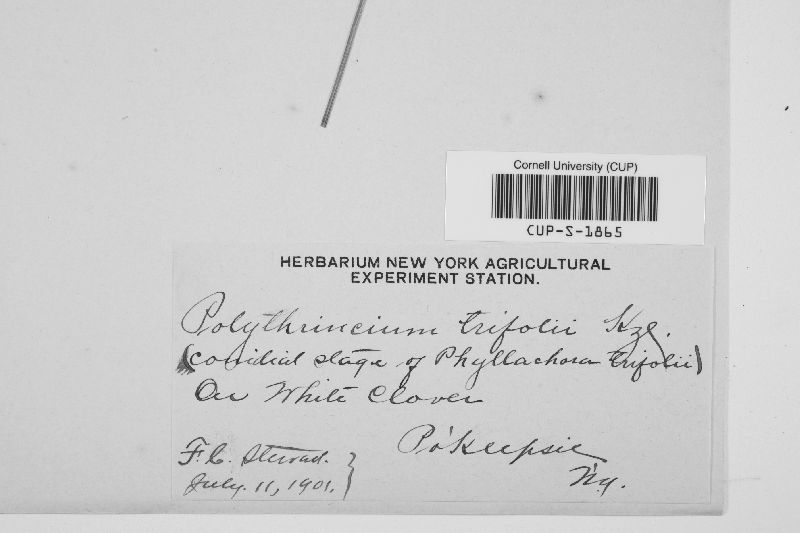 Cornell University (CUP)
CUP-S-1865
HERBARIUM NEW YORK AGRICULTURAL
EXPERIMENT STATION.
Polythrincium trifolii Kze.
(conidial stage of Phyllachora trifolii)
On White Clover
Po'Keepsie
N.Y.
F.C. Stewart.
July. 11, 1901.